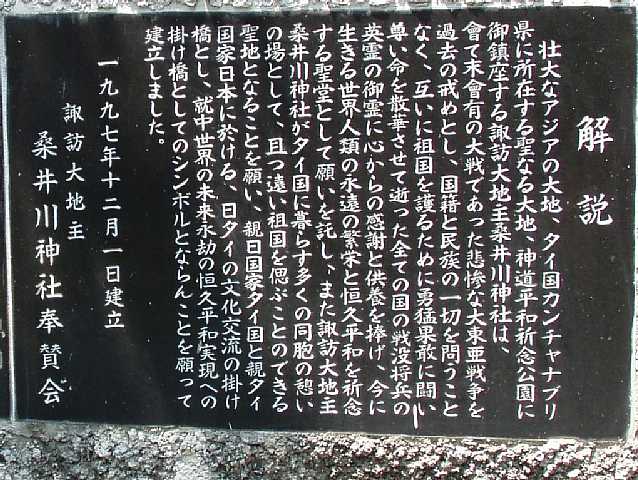 解説
壮大なアジアの大地、タイ国カンチャナブリ
県に所在する聖なる大地、神道平和祈念公園に
御鎮座する諏訪大地主桑井川神社は、
會て末會有の大戦であった悲惨な大東亜戦争を
過去の戒めとし、国籍と民族の一切を問うこと
なく、互いに祖国を護るために勇猛果敢に闘い
尊い命を散華させて逝った全ての国の戦没将兵の
英霊の御霊に心からの感謝と供養を捧げ、今に
生きる世界人類の永遠の繁栄と恒久平和を祈念
する聖堂として願いを託し、また諏訪大地主
桑井川神社がタイ国に暮らす多くの同胞の憩い
の場として、且つ遠い祖国を偲ぶことのできる
聖地となることを願い、親日国家タイ国と親タイ
国家日本に於ける、日タイの文化交流の掛け
橋とし、就中世界の未来永劫の恒久平和実現への
掛け橋としてのシンボルとならんことを願って
建立しました。
一九九七年十二月一日建立
諏訪大地主
桑井川神社奉賛会